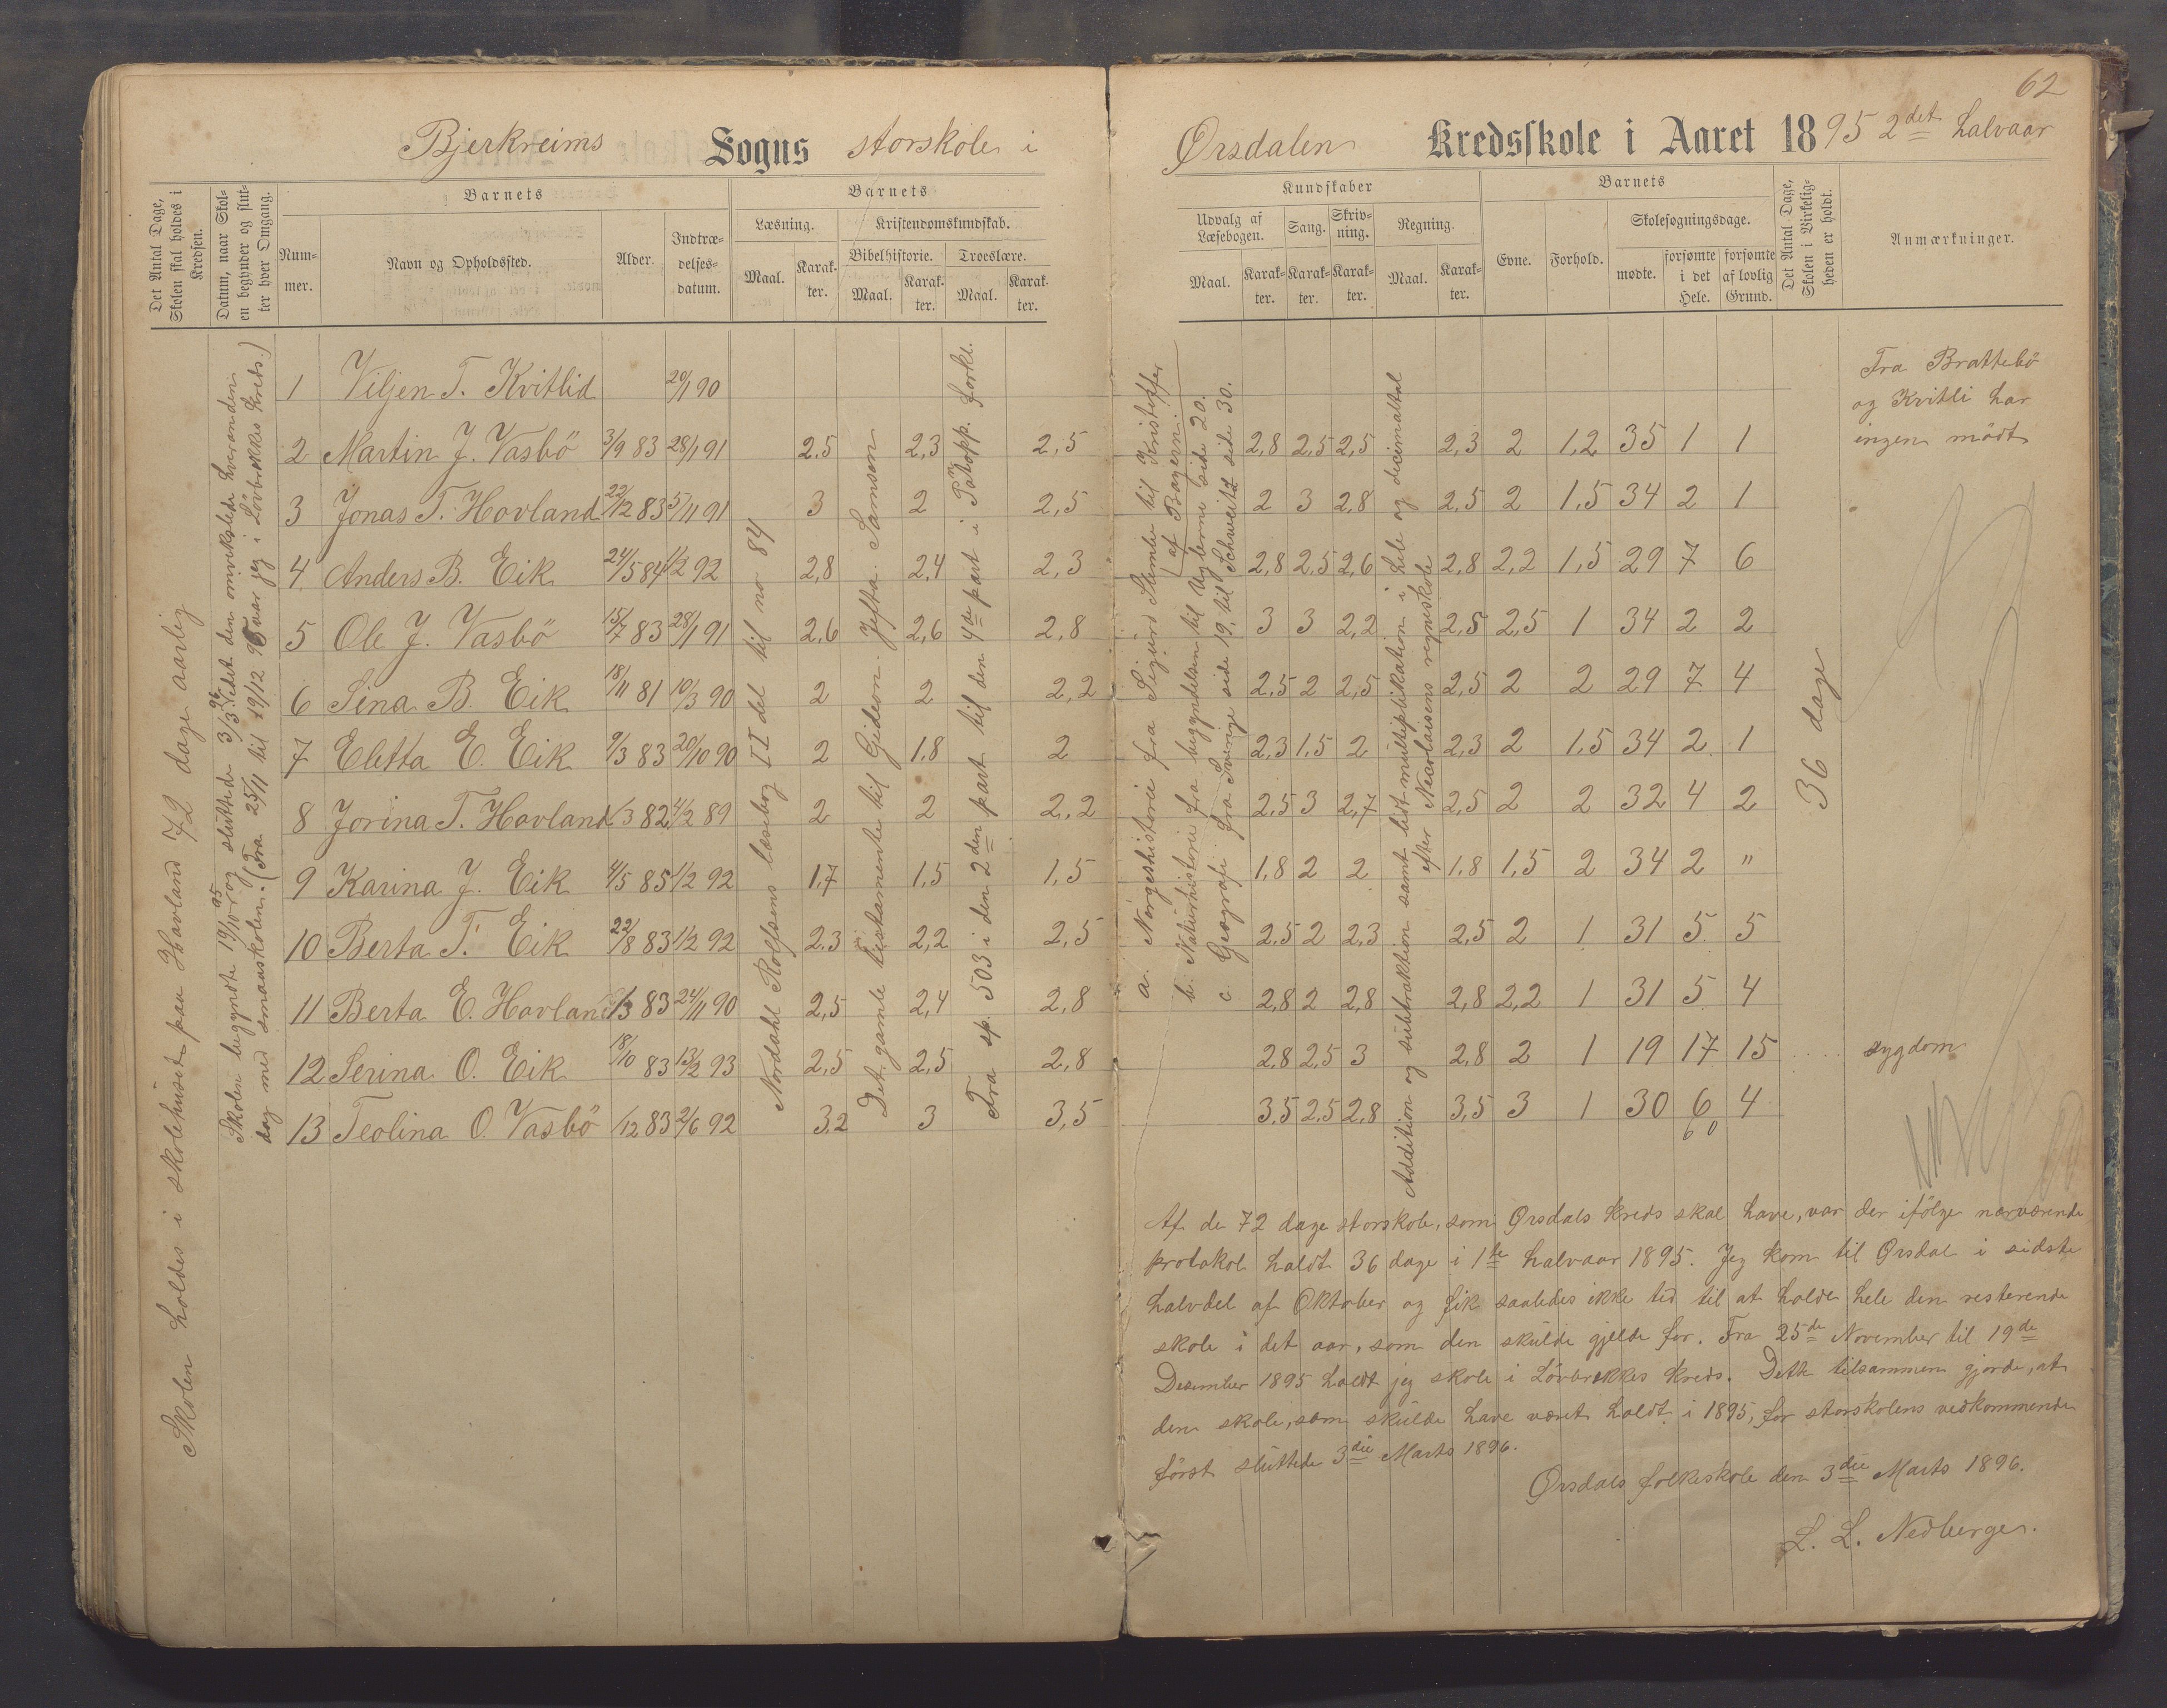 62
Bjerkreims Sogns storskole i Ørsdalen Kredsskole i Aaret 1895 2det halvaar
Det Antal Dage, Skolen skal holdes i Kredsen.
Datum, naar Skolen begynder og slutter hver Omgang.
Barnets
Nummer.
Navn og Opholdssted.
Alder.
Indtrædelsesdatum.
Barnets
Læsning.
Maal.
Karakter.
Kristendomskundskab.
Bibelhistorie.
Maal.
Karakter.
Troeslære.
Maal.
Karakter.
Kundskaber
Udvalg af Læsebogen.
Maal.
Karakter.
Sang.
Karakter.
Skrivning.
Karakter.
Regning.
Maal.
Karakter.
Barnets
Evne.
Forhold.
Skolesøgningsdage.
mødte.
forsømte i det Hele.
forsømte af lovlig Grund.
Det Antal Dage, Skolen i Virkeligheden er holdt.
Anmærkninger.
Skolen holdes i skolehuset paa Hovland 72 dage aarlig
Skolen begyndte 19/10 95 og sluttede 3/3 96. Holdt den omvekslede hveranden
dag med smaaskolen. (Fra 25/11 til 19/12 95 var jeg i Lövbrekkes kreds.)
Nordahl Rolfsens læsebog II del til no 84
Det gamle testamente til Gideon. Jefta. Samson
Fra sp. 503 i den 2den part til den 4de part i Pakopp. forkl.
a. Norgeshistorie fra Sigurd Slembe til Kristoffer
af Bayern.
b. Naturhistorie fra begyndelsen til Uglerne side 20.
c. Geografi fra Sverige side 19, til Schweitz side 30.
Addition og subtraktion samt lidt multiplikation i hele og decimaltal
efter Nicolaisens regneskole
36 dage
1 Viljen T. Kvitlid 20/1 90
2 Martin J. Vasbö 3/9 83 28/1 91 2,5 2,3 2,5 2,8 2,5 2,5 2,3 2 1,2 35 1 1
3 Jonas T. Hovland 22/12 83 5/11 91 3 2 2,5 2 3 2,8 2,5 2 1,5 34 2 1
4 Anders B. Eik 24/5 84 1/2 92 2,8 2,4 2,3 2,8 2,5 2,6 2,8 2,2 1,5 29 7 6
5 Ole J. Vasbö 15/7 83 28/1 91 2,6 2,6 2,8 3 3 2,2 2,8 2,5 1 34 2 2
6 Sina B. Eik 18/11 81 10/3 90 2 2 2,2 2,5 2 2,5 2,5 2 2 29 7 4
7 Eletta E. Eik 9/3 83 20/10 90 2 1,8 2 2,3 1,5 2 2,3 2 1,5 34 2 1
8 Jorina T. Hovland /3 82 4/2 89 2 2 2,2 2,5 3 2,7 2,5 2 2 32 4 2
9 Karina J. Eik 4/5 85 1/2 92 1,7 1,5 1,5 1,8 2 2 1,8 1,5 2 34 2 "
10 Berta T. Eik 22/8 83 1/2 92 2,3 2,2 2,5 2,5 2 2,3 2,5 2 1 31 5 5
11 Berta E. Hovland /3 83 24/11 90 2,5 2,4 2,8 2,8 2 2,8 2,8 2,2 1 31 5 4
12 Serina O. Eik 18/10 83 13/2 93 2,5 2,5 2,8 2,8 2,5 3 2,8 2 1 19 17 15 sygdom
13 Teolina O. Vasbö /12 83 2/6 92 3,2 3 3,5 3,5 2,5 2,8 3,5 3 1 30 6 4
60
Fra Brattebö
og Kvitli har
ingen mödt
Af de 72 dage storskole, som Ørsdals kreds skal have, var der ifölge nærværende
protokol holdt 36 dage i 1ste halvaar 1895. Jeg kom til Ørsdal i sidste
halvdel af Oktober og fik saaledes ikke tid til at holde hele den resterende
skole i det aar, som den skulde gjelde for. Fra 25de November til 19de
Desember 1895 holdt jeg skole i Lövbrekkes kreds. Dette tilsammen gjorde, at
den skole, som skulde have været holdt i 1895, for storskolens vedkommende
först sluttede 3die Marts 1896.
Ørsdals folkeskole den 3die Marts 1896.
L. L. Nedberge.